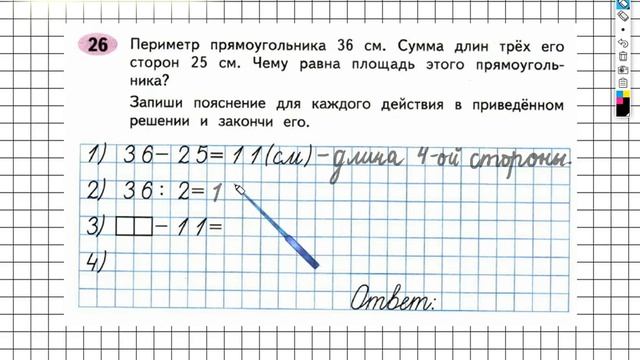 26 Периметр прямоугольника 36 см. Сумма длин трёх его
сторон 25 см. Чему равна площадь этого прямоуголь-
ника?
Запиши пояснение для каждого действия в приведённом
решении и закончи его.
1) 36-25=11(см)-длина 4-ой стороны.
2) 36:2=1
3) -11=
4)
Ответ: